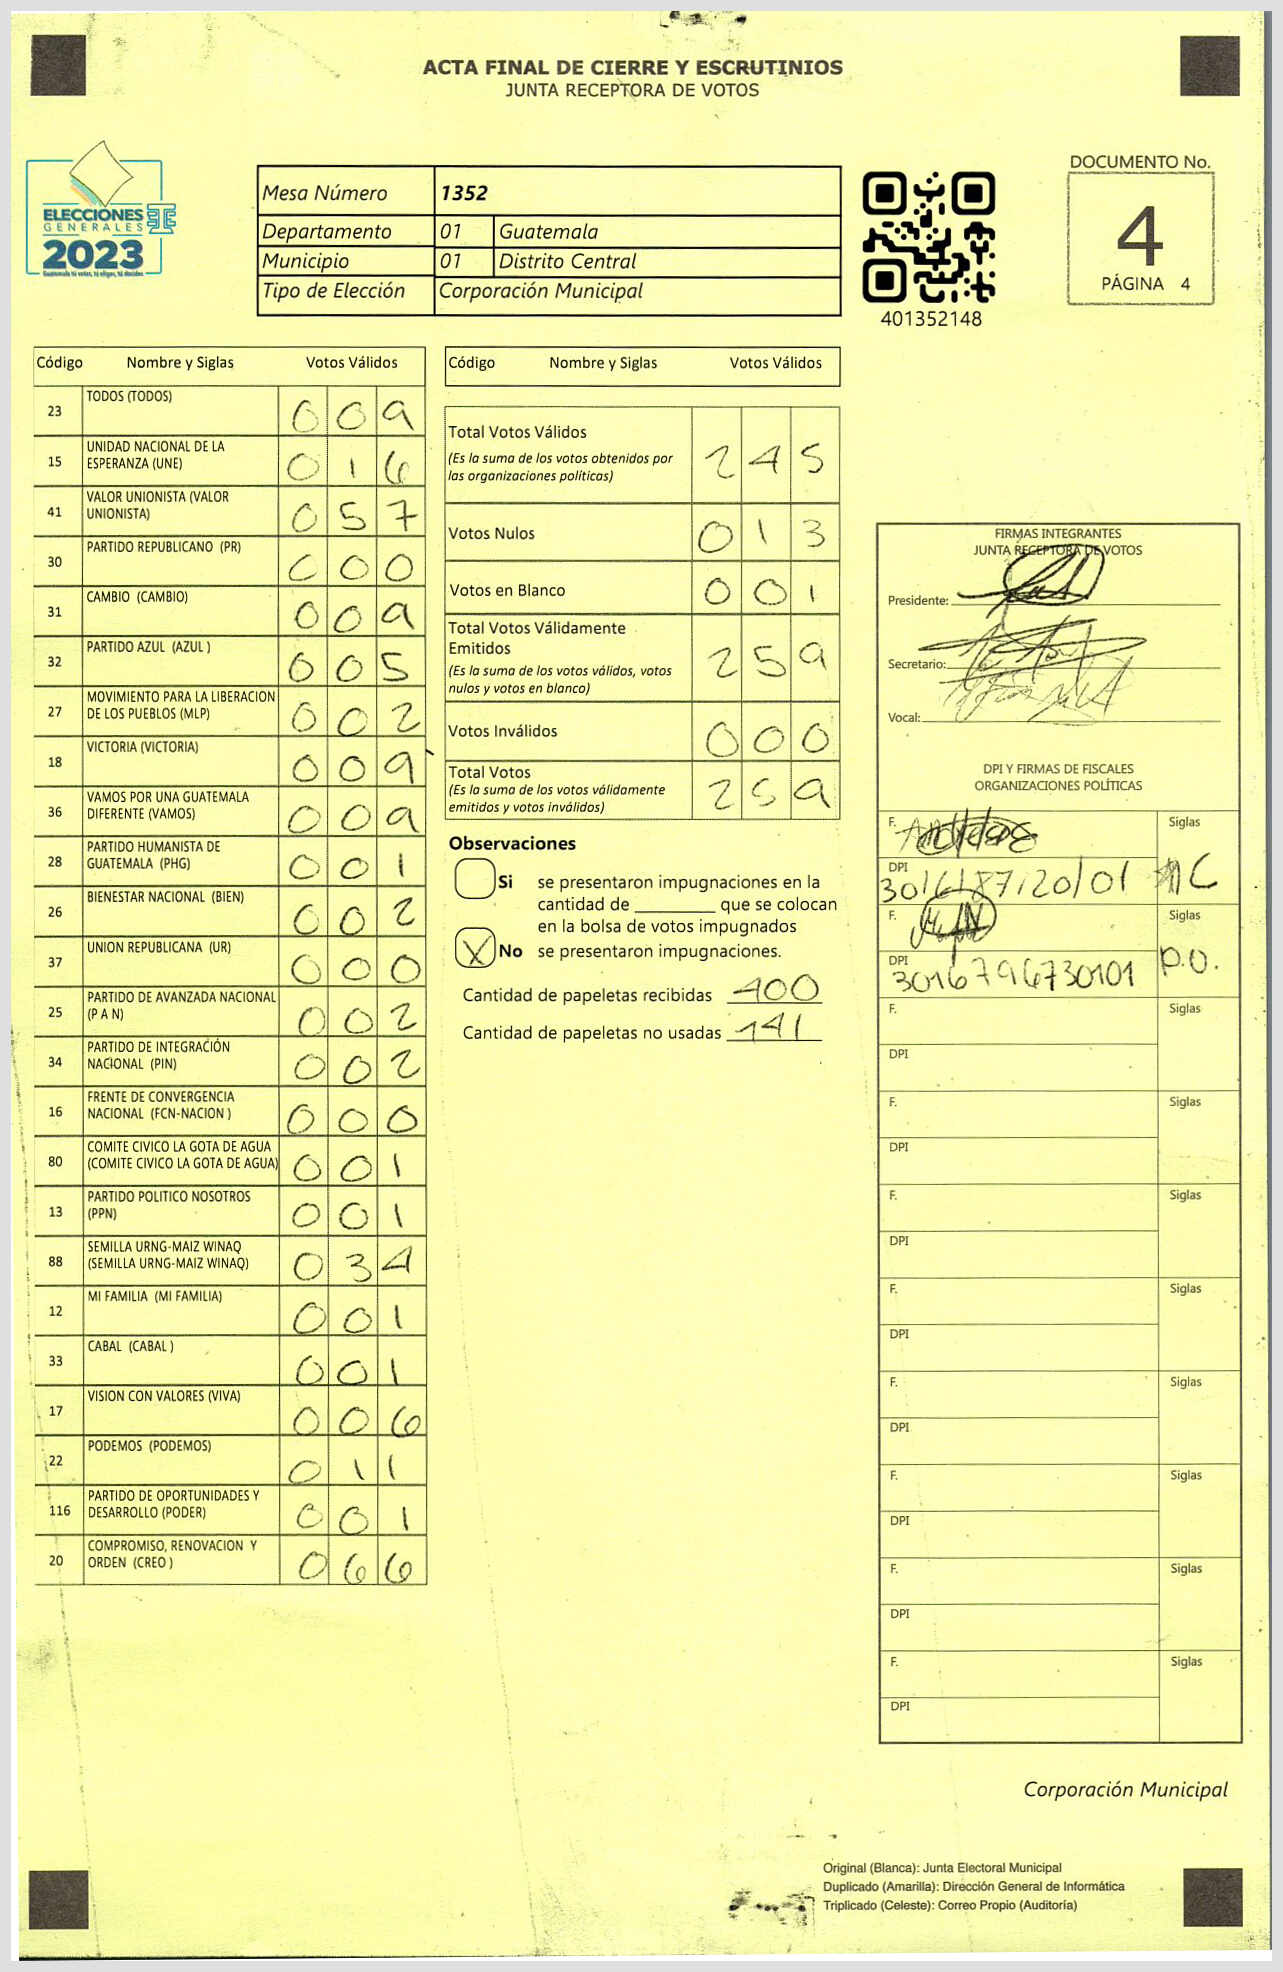 ACTA FINAL DE CIERRE Y ESCRUTINIOS
JUNTA RECEPTORA DE VOTOS
ELECCIONES
GENERALES
2023
Guatemala tú votas, tú eliges, tú decides
Mesa Número 1352
Departamento 01 Guatemala
Municipio 01 Distrito Central
Tipo de Elección Corporación Municipal
401352148
DOCUMENTO No.
4
PÁGINA 4
Código Nombre y Siglas Votos Válidos
23 TODOS (TODOS) 009
15 UNIDAD NACIONAL DE LA
ESPERANZA (UNE) 016
41 VALOR UNIONISTA (VALOR
UNIONISTA) 057
30 PARTIDO REPUBLICANO (PR) 000
31 CAMBIO (CAMBIO) 009
32 PARTIDO AZUL (AZUL ) 005
27 MOVIMIENTO PARA LA LIBERACION
DE LOS PUEBLOS (MLP) 002
18 VICTORIA (VICTORIA) 009
36 VAMOS POR UNA GUATEMALA
DIFERENTE (VAMOS) 009
28 PARTIDO HUMANISTA DE
GUATEMALA (PHG) 001
26 BIENESTAR NACIONAL (BIEN) 002
37 UNION REPUBLICANA (UR) 000
25 PARTIDO DE AVANZADA NACIONAL
(P A N) 002
34 PARTIDO DE INTEGRACIÓN
NACIONAL (PIN) 002
16 FRENTE DE CONVERGENCIA
NACIONAL (FCN-NACION ) 000
80 COMITE CIVICO LA GOTA DE AGUA
(COMITE CIVICO LA GOTA DE AGUA) 001
13 PARTIDO POLITICO NOSOTROS
(PPN) 001
88 SEMILLA URNG-MAIZ WINAQ
(SEMILLA URNG-MAIZ WINAQ) 034
12 MI FAMILIA (MI FAMILIA) 001
33 CABAL (CABAL ) 001
17 VISION CON VALORES (VIVA) 006
22 PODEMOS (PODEMOS) 011
116 PARTIDO DE OPORTUNIDADES Y
DESARROLLO (PODER) 001
20 COMPROMISO, RENOVACION Y
ORDEN (CREO ) 066
Código Nombre y Siglas Votos Válidos
Total Votos Válidos
(Es la suma de los votos obtenidos por
las organizaciones políticas) 245
Votos Nulos 013
Votos en Blanco 001
Total Votos Válidamente
Emitidos
(Es la suma de los votos válidos, votos
nulos y votos en blanco) 259
Votos Inválidos 000
Total Votos
(Es la suma de los votos válidamente
emitidos y votos inválidos) 259
Observaciones
Si se presentaron impugnaciones en la
cantidad de ________ que se colocan
en la bolsa de votos impugnados
X No se presentaron impugnaciones.
Cantidad de papeletas recibidas 400
Cantidad de papeletas no usadas 141
FIRMAS INTEGRANTES
JUNTA RECEPTORA DE VOTOS
Presidente:
Secretario:
Vocal:
DPI Y FIRMAS DE FISCALES
ORGANIZACIONES POLÍTICAS
F. Siglas
DPI
F. Siglas
DPI 3016796730101 P.U.
F. Siglas
DPI
F. Siglas
DPI
F. Siglas
DPI
F. Siglas
DPI
F. Siglas
DPI
F. Siglas
DPI
F. Siglas
DPI
F. Siglas
DPI
Corporación Municipal
Original (Blanca): Junta Electoral Municipal
Duplicado (Amarilla): Dirección General de Informática
Triplicado (Celeste): Correo Propio (Auditoría)